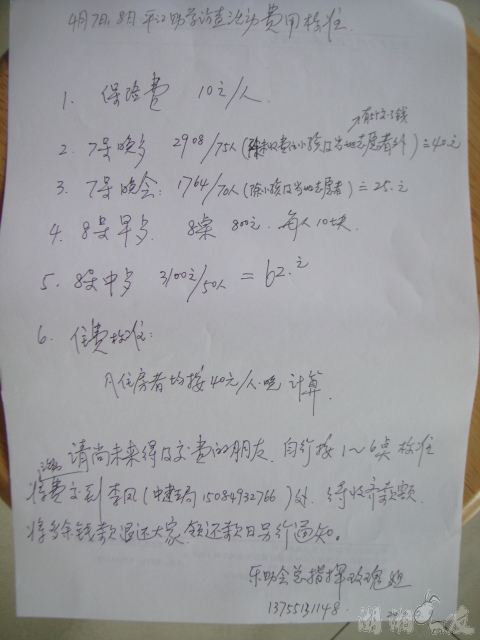 4月7日、8日平江助学访查活动费用标准
1. 保险费 10元/人.
2. 7号晚歺 2908/75人(除未收费的小孩及当地志愿者外)=40元
3. 7号晚会: 1764/70人(除小孩及当地志愿者)=25.元
4. 8号早歺. 8桌 800元. 每人10块.
5. 8号中歺 3100元/50人 = 62.元
6. 住费标准:
凡住房者均按40元/人.晚 计算.
请尚未来得及交费的朋友.自行按1~6点标准
将费交到李凤(中建五局 15084932766)处. 待收齐款额.
将多余钱款退还大家.领还款日另行通知。
乐助会总指挥 玫瑰姐
13755131148.
湖湘 友